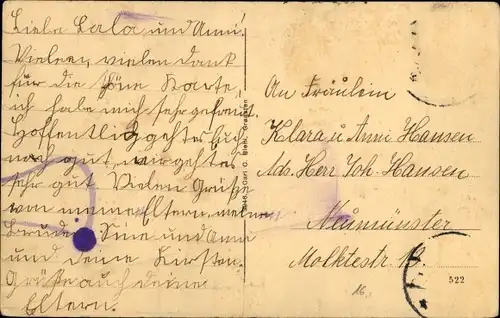 Liebe Lala und Anni.
Vielen, vielen dank
für die schöne Karte,
ich habe mich sehr gefreut.
Hoffentlich geht es Euch
noch gut, wir geht es
sehr gut. Vielen Grüße
von meine Eltern, meine
Bruder, Sine und Anne
und deine Kirsten.
Grüße auch deine
Eltern.
An Fräulein
Klara u. Anni Hansen
Ads. Herr Joh. Hansen
Neumünster
Molktestr. 13.
522